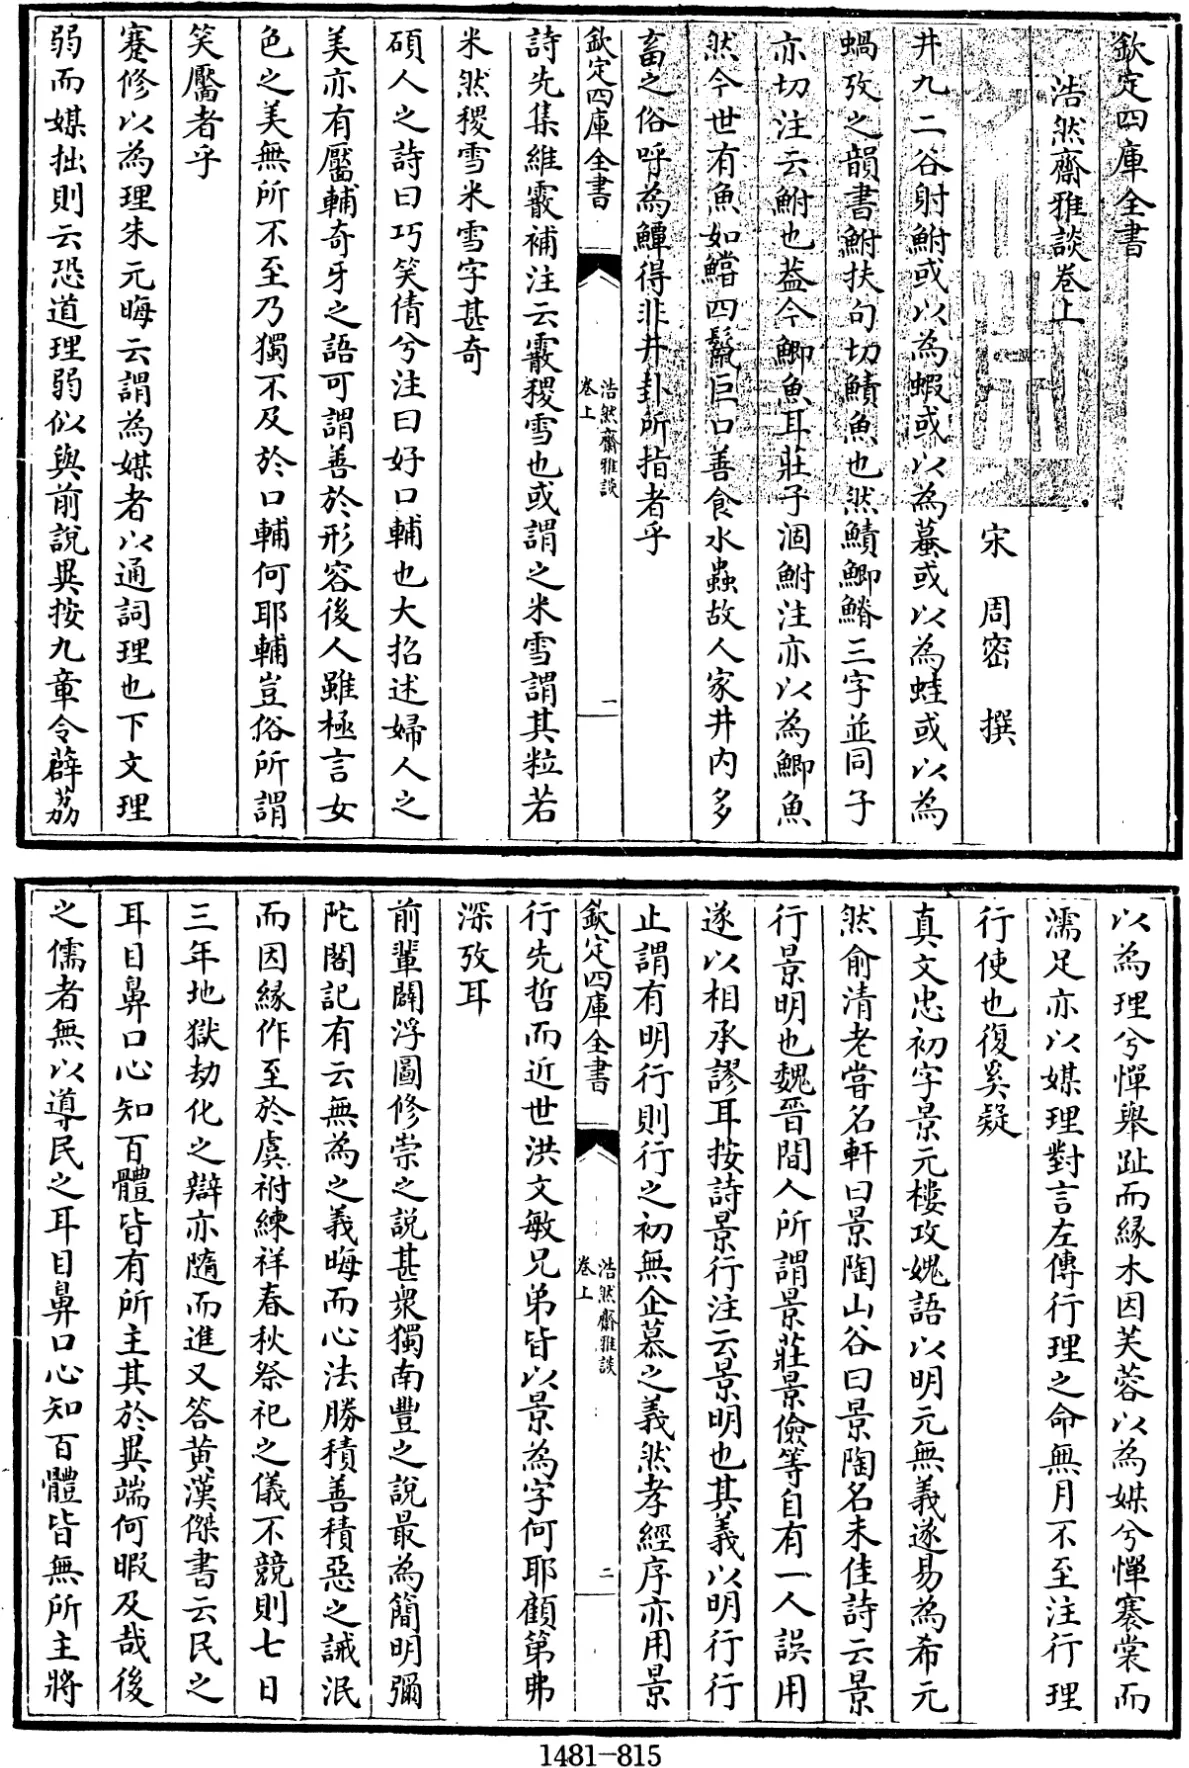 欽定四庫全書
浩然齋雅談卷上
宋 周密 撰
井九二谷射鮒或以為蝦或以為蟇或以為蛙或以為
蝸攷之韻書鮒扶句切鰿魚也然鰿鯽鰿三字並同子
亦切注云鮒也葢今鯽魚耳莊子涸鮒注亦以為鯽魚
然今世有魚如鱨四鬛巨口善食水蟲故人家井内多
畜之俗呼為鱓得非井卦所指者乎
欽定四庫全書
浩然齋雅談
卷上
一
詩先集維霰補注云霰稷雪也或謂之米雪謂其粒若
米然稷雪米雪字甚奇
碩人之詩曰巧笑倩兮注曰好口輔也大招述婦人之
美亦有靨輔奇牙之語可謂善於形容後人雖極言女
色之美無所不至乃獨不及於口輔何耶輔豈俗所謂
笑靨者乎
蹇修以為理朱元晦云謂為媒者以通詞理也下文理
弱而媒拙則云恐道理弱似與前說異按九章令薜荔
以為理兮憚舉趾而緣木因芙蓉以為媒兮憚褰裳而
濡足亦以媒理對言左傳行理之命無月不至注行理
行使也復奚疑
真文忠初字景元樓攻媿語以明元無義遂易為希元
然俞清老嘗名軒曰景陶山谷曰景陶名未佳詩云景
行景明也魏晉間人所謂景莊景儉等自有一人誤用
遂以相承謬耳按詩景行注云景明也其義以明行行
止謂有明行則行之初無企慕之義然孝經序亦用景
欽定四庫全書
浩然齋雅談
卷上
二
行先哲而近世洪文敏兄弟皆以景為字何耶顧第弗
深攷耳
前輩闢浮圖修崇之說甚衆獨南豐之說最為簡明彌
陀閣記有云無為之義晦而心法勝積善積惡之誡泯
而因緣作至於虞祔練祥春秋祭祀之儀不競則七日
三年地獄劫化之辯亦隨而進又答黄漢傑書云民之
耳目鼻口心知百體皆有所主其於異端何暇及哉後
之儒者無以導民之耳目鼻口心知百體皆無所主將
1481-815